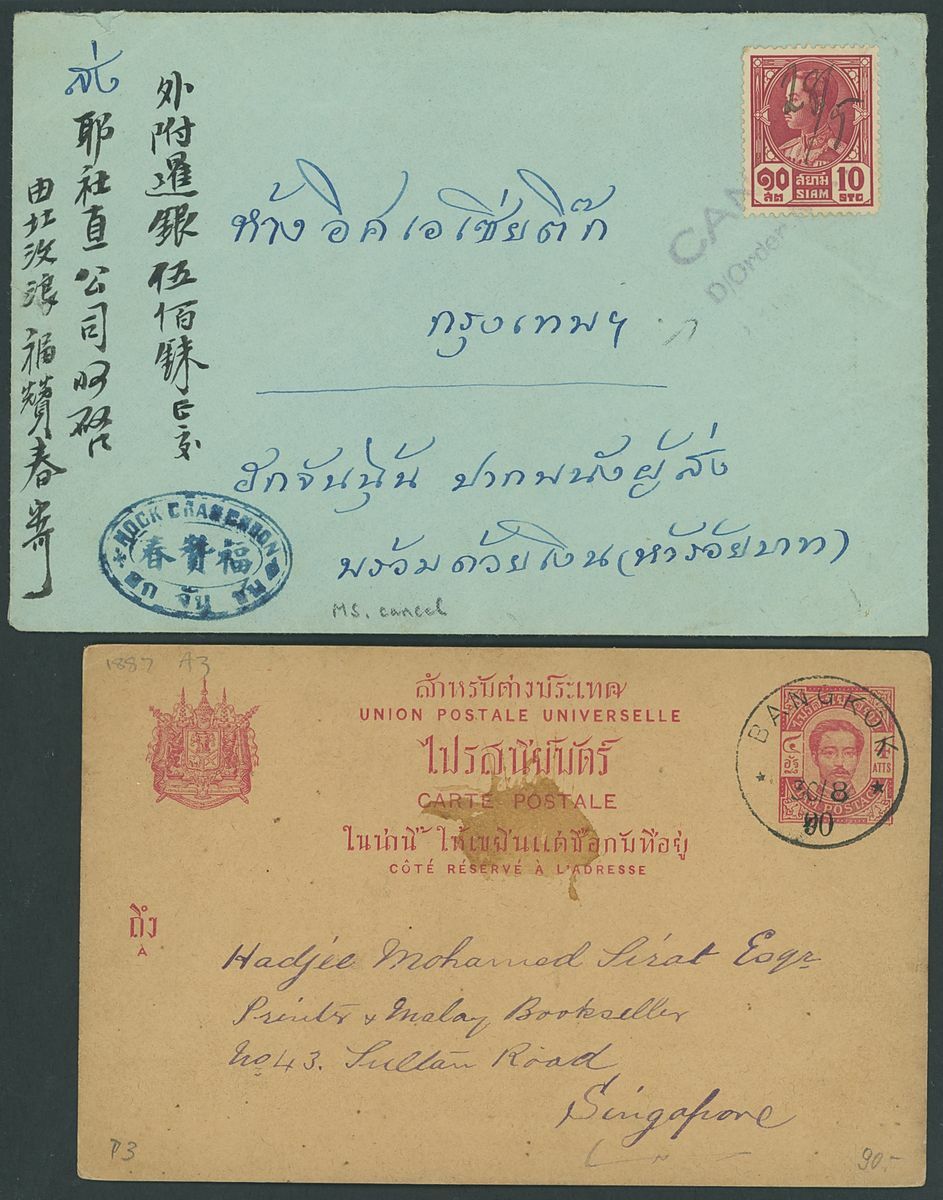 外附暹銀伍佰銖正交
ส่ง
耶社直公司 啓
由北汶浪福贊春寄
๑๐ สยาม 10
สต SIAM STG
28/5
CAN
D/Order
ห้างอิศเอเชี่ยติ๊ก
กรุงเทพฯ
ฮกจันชุ้น ปากพนังผู้ส่ง
พร้อมด้วยเงิน (ห้าร้อยบาท)
HOCK CHAN CHOON
福贊春
MS. cancel
1887 A3
สำหรับต่างประเทศ
UNION POSTALE UNIVERSELLE
ไปรสนีย์บัตร์
CARTE POSTALE
ในน่านี้ ให้เขียนแต่ชื่อกับที่อยู่
CÔTÉ RÉSERVÉ À L'ADRESSE
๔ อัฐ
ATTS
POSTAL
BANGKOK
30/8
90
ถึง
À
Hadjee Mohamed Sirat Esqr
Printer & Malay Bookseller
No 43. Sultan Road
Singapore
P3
90.-